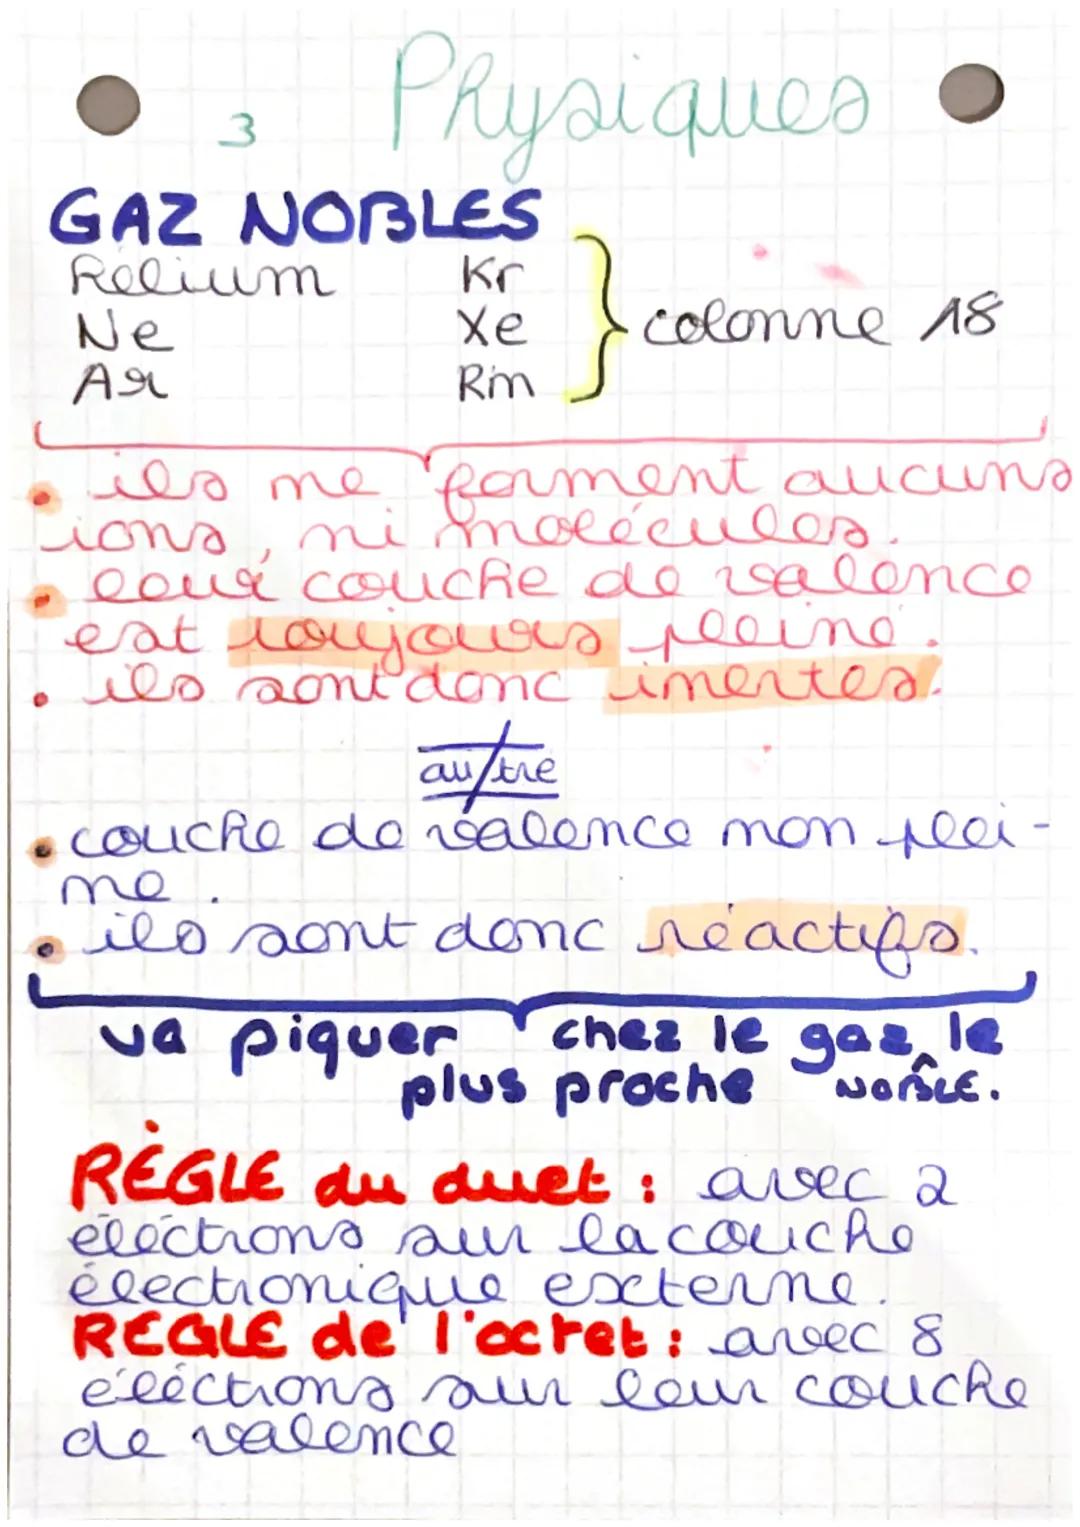 Physiques
3
GAZ NOBLES
hélium Kr
Ne Xe
Ar Rn
colonne 18
• ils ne forment aucuns
ions, ni molécules.
• leur couche de valence
est toujours pleine.
• ils sont donc inertes.
autre
• couche de valence non plei-
ne.
• ils sont donc réactifs.
va piquer chez le gaz le
plus proche NOBLE.
RÈGLE du duet : avec 2
éléctrons sur la couche
électronique externe.
RÈGLE de l'octet : avec 8
éléctrons sur leur couche
de valence